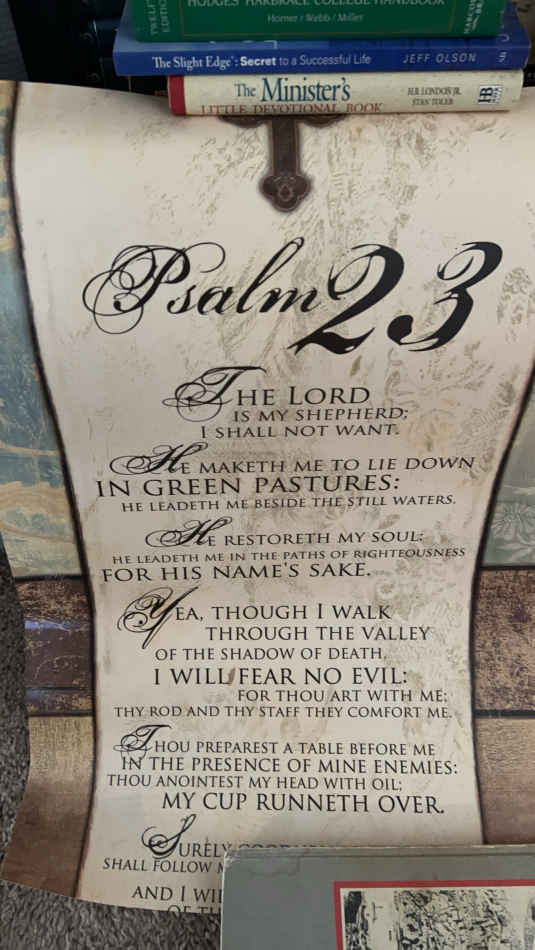 TWELFTH EDITION
HODGES' HARBRACE COLLEGE HANDBOOK
Horner / Webb / Miller
HARCOURT
The Slight Edge: Secret to a Successful Life JEFF OLSON
The Minister's
LITTLE DEVOTIONAL BOOK
H.B. LONDON JR.
STAN TOLER
Psalm 23
THE LORD
IS MY SHEPHERD;
I SHALL NOT WANT.
HE MAKETH ME TO LIE DOWN
IN GREEN PASTURES:
HE LEADETH ME BESIDE THE STILL WATERS.
HE RESTORETH MY SOUL:
HE LEADETH ME IN THE PATHS OF RIGHTEOUSNESS
FOR HIS NAME'S SAKE.
YEA, THOUGH I WALK
THROUGH THE VALLEY
OF THE SHADOW OF DEATH,
I WILL FEAR NO EVIL:
FOR THOU ART WITH ME;
THY ROD AND THY STAFF THEY COMFORT ME.
THOU PREPAREST A TABLE BEFORE ME
IN THE PRESENCE OF MINE ENEMIES:
THOU ANOINTEST MY HEAD WITH OIL;
MY CUP RUNNETH OVER.
SURELY
SHALL FOLLOW
AND I